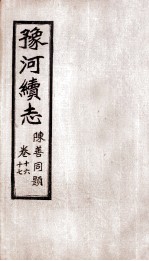 豫河續志
陳善同題
卷十六
十七